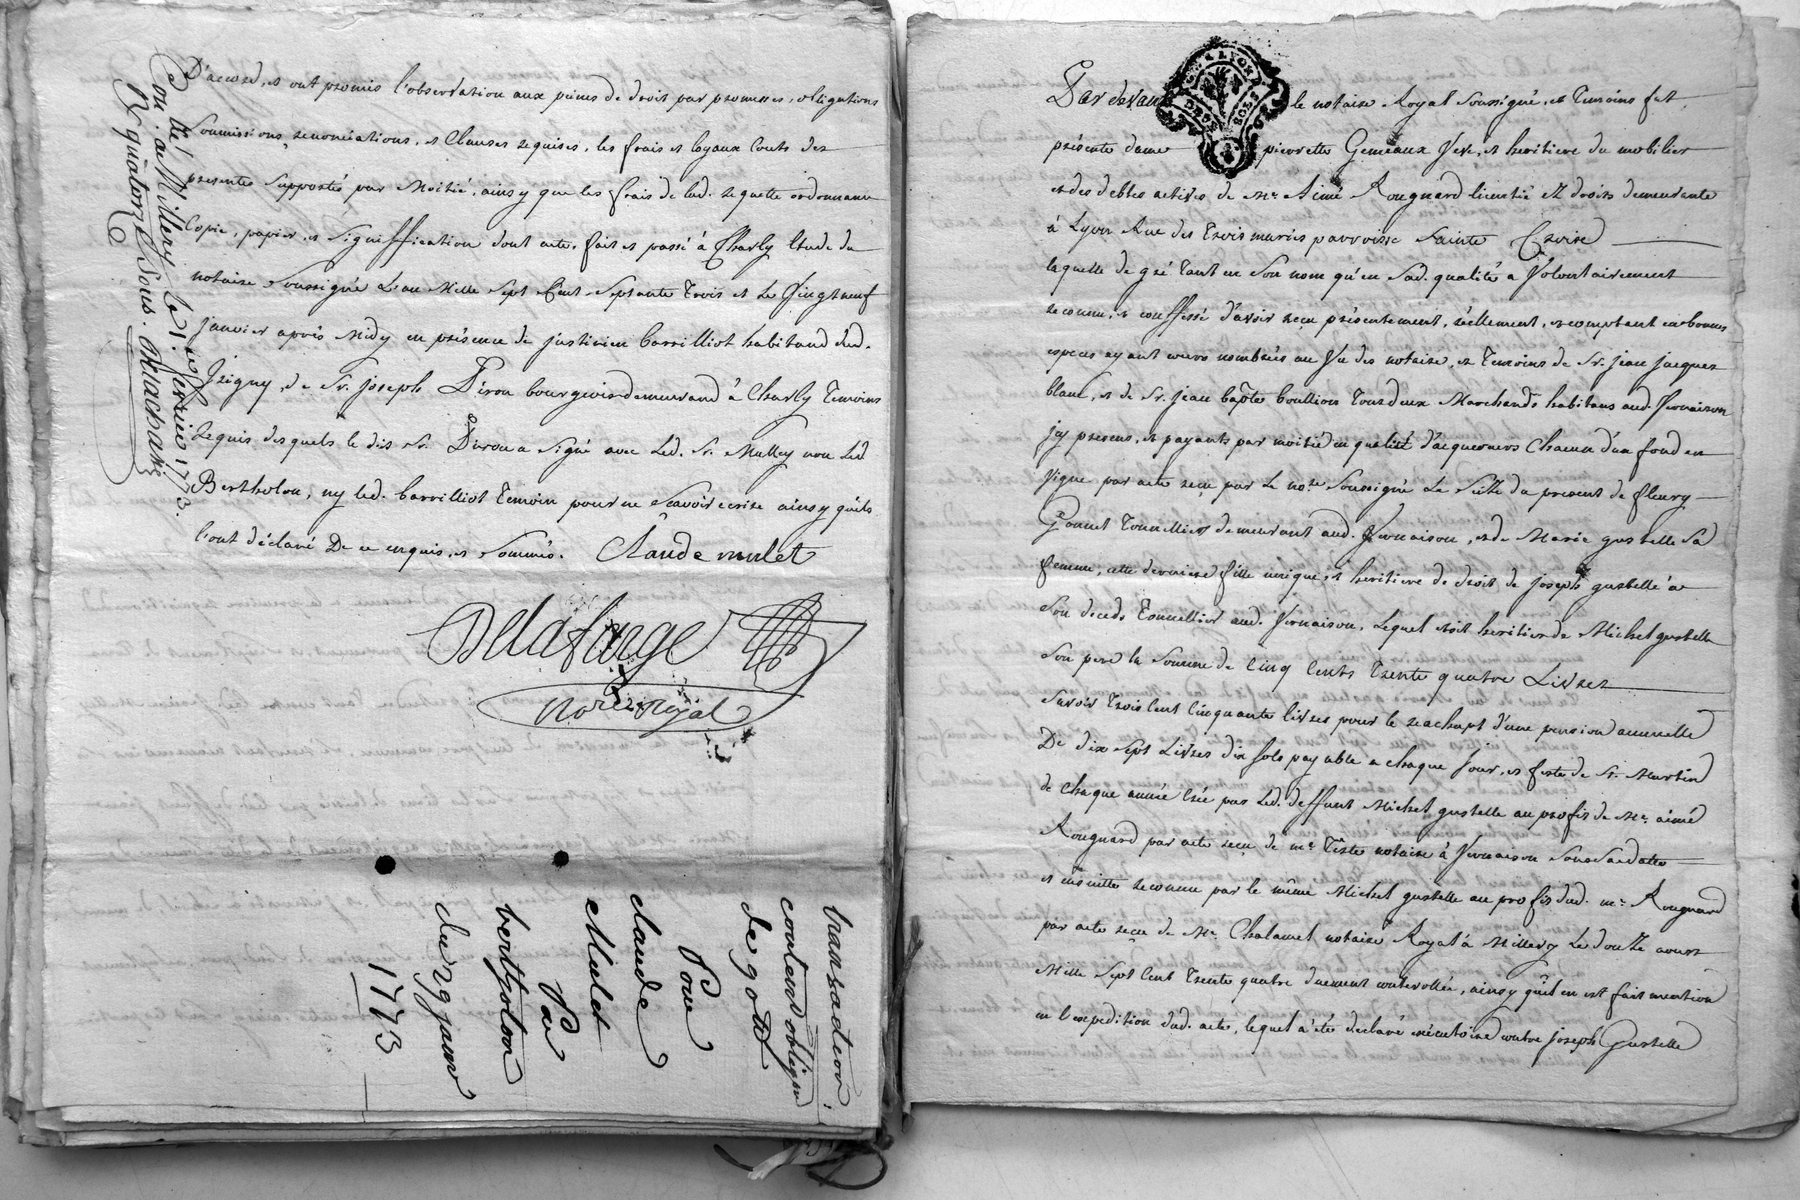 D'accord, et ont promis l'observation aux peines de droit par promesses, obligations
soumissions, renonciations, et Clauses requises, les frais et loyaux Couts des
presentes supportés par Moitié, ainsy que les frais de lad. requette ordonnance
Copie, papier, et signiffication dont acte, fait et passé à Charly Etude du
notaire soussigné L'an Mille Sept Cent Septante Trois et Le Vingt neuf
janvier après Midy en présence de justinien Carrilliot habitand dud.
Irigny, et de Sr. joseph Piron bourgeois demeurand à Charly Temoins
Requis desquels le dit Sr. Piron a signé avec Led. Sr. Mulley non Led
Bertholon, ny led. Carrilliot Temoin pour ne sçavoir ecrire ainsy qu'ils
l'ont déclaré De ce enquis, et sommés. Claude mulet
Delafarge
Nore Royal
Con. à Millery le 1. er fevrier 1773.
R quatorze Sous.
transaction
de
Pour
claude
Mulet
Par
bertholon
du 29 janv
1773
Par devant le notaire Royal soussigné, et Temoins fut
présente dame pierrette Gemeaux Veve, et heritiere du mobilier
et des debtes actives de Me Aimé Rougnard licentié ez droits demeurante
à Lyon Rue des Trois maries parroisse Sainte Croix
laquelle de gré tant en son nom qu'en sad. qualité a Volontairement
reconnu, et confessé d'avoir reçu présentement, réellement, et comptant en bonnes
especes ayant cours nombrées au Vu des notaire, et Temoins de Sr. jean jacques
blanc, et de Sr. jean bapte boullion Tous deux Marchands habitans aud. Vernaison
icy presens, et payants par moitié en qualité d'acquereurs Chacun d'un fond en
Vigne par acte reçu par Le nore Soussigné Le Seize du present de fleury
Gonnet Tonnellier demeurant aud. Vernaison, et de Marie gustelle sa
femme, cette derniere fille unique, et heritiere de droit de joseph gustelle à
son decéds Tonnellier aud. Vernaison, Lequel etoit heritier de Michel gustelle
son pere la Somme de Cinq Cents Trente quatre Livres
Savoir Trois Cent Cinquante livres pour le reachapt d'une pension annuelle
De dix sept Livres dix sols payable a chaque jour, et feste de St. Martin
de Chaque année Créé par Led. deffunt Michel gustelle au profit de Me. aimé
Rougnard par acte reçu de me Teste notaire à Vernaison sous sa datte
et ensuitte reconnu par le même Michel gustelle au profit dud. me. Rougnard
par acte reçu de Me. Chalamel notaire Royal à Millery Le douze aoust
Mille Sept Cent Trente quatre duement controllée, ainsy qu'il en est fait mention
en l'expedition dud. acte, lequel a étés declaré exécutoire contre joseph Gustelle